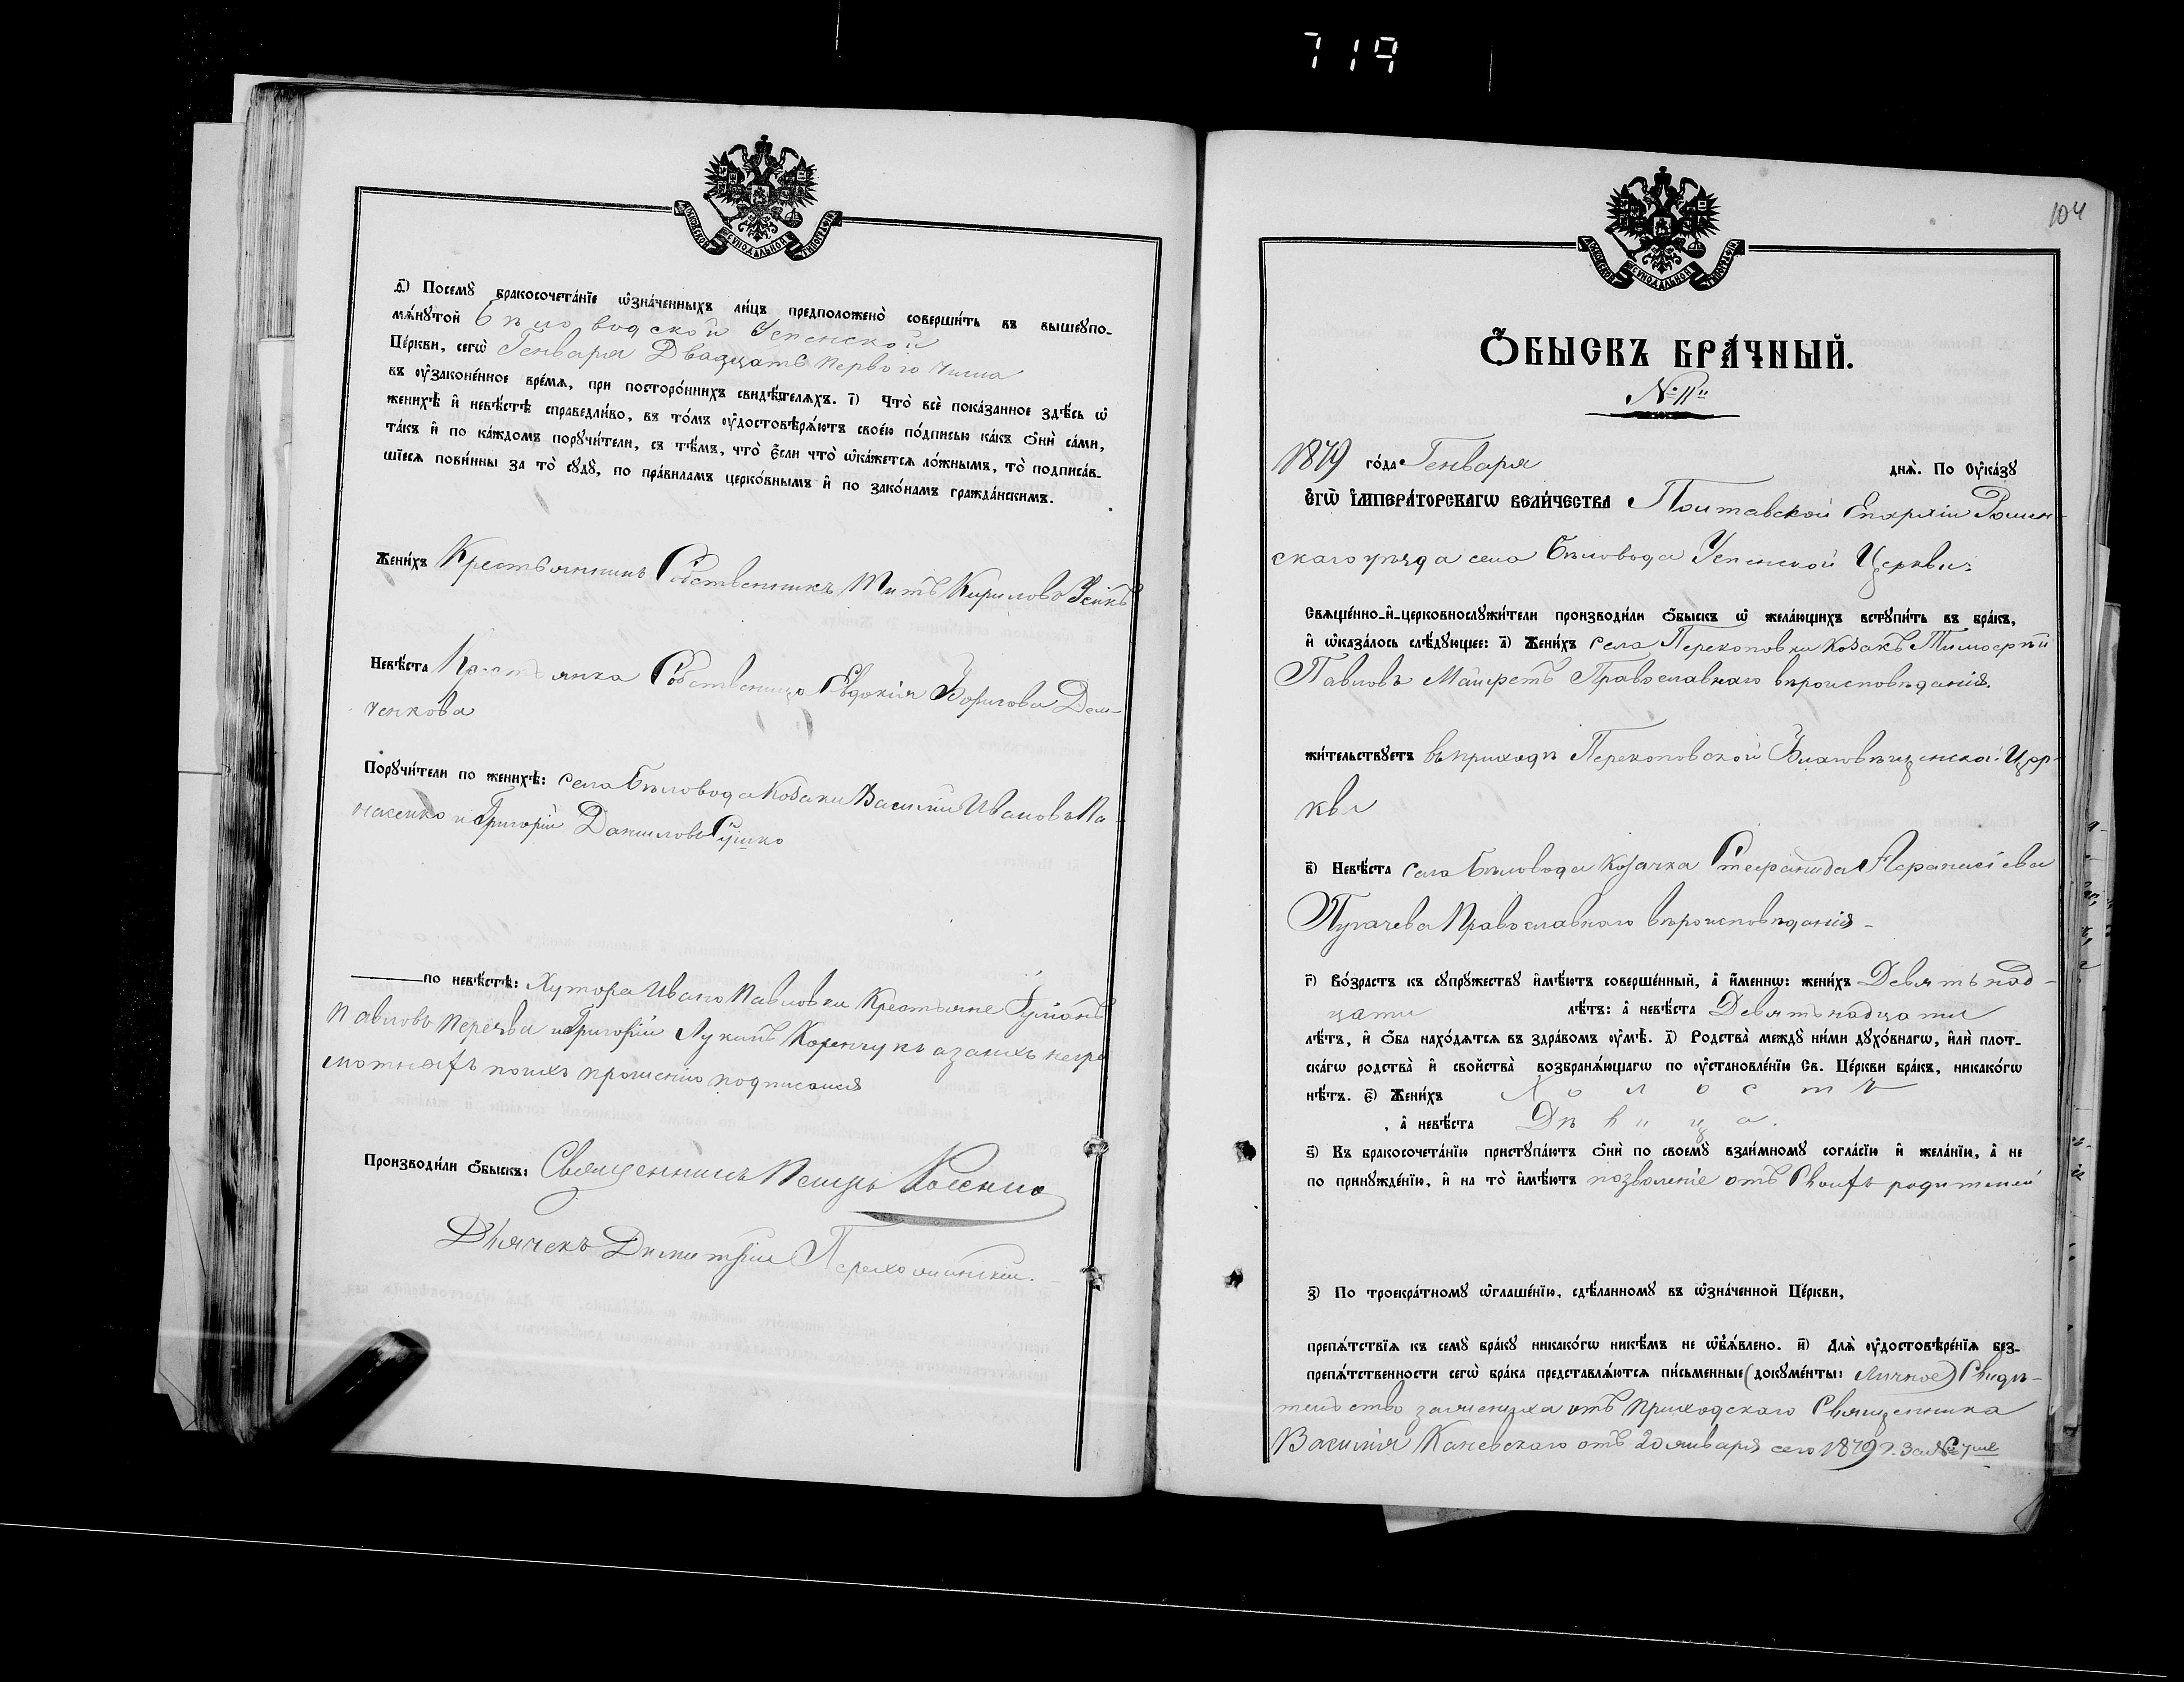 719
МОСКОВСКОЙ СѴНОДАЛЬНОЙ ТИПОГРАФІИ
д҃) Посемꙋ бракосочета́нїе ѡ҆зна́ченныхъ ли́цъ предположено̀ соверши́ть въ вышеꙋпо-
мѧ́нꙋтой Бѣловодской Успенской
Це́ркви, сегѡ̀ Генваря Двадцать Первого числа
въ ᲂу҆законе́нное вре́мѧ, при посторо́ннихъ свидѣ́телѧхъ. і҃) Что̀ всѐ пока́занное здѣ́сь ѡ҆
женихѣ̀ и҆ невѣ́стѣ справедли́во, въ то́мъ ᲂу҆достовѣрѧ́ютъ свое́ю по́дписью ка́къ ѻ҆нѝ са́ми,
та́къ и҆ по ка́ждомъ порꙋчи́тели, съ тѣ́мъ, что̀ є҆́сли что̀ ѡ҆ка́жетсѧ ло́жнымъ, то̀ подписа́в-
шїесѧ пови́нны за то̀ сꙋдꙋ̀, по пра́виламъ церко́внымъ и҆ по зако́намъ гражда́нскимъ.
Жени́хъ Крестьянинъ Собственникъ Титъ Кириловъ Усикъ
Невѣ́ста Крестьянка Собственица Евдокія Борисова Дем-
ченкова
Порꙋчи́тели по женихѣ̀: села Бѣловода Козаки Василій Ивановъ Па-
насенко и Григорій Даниловъ Сушко
по невѣ́стѣ: Хутора Ивано Павловки Крестьяне
Павловъ Перечва и Григорій Лукинъ а за нихъ негра
мотныхъ по ихъ прошенію подписался
Производи́ли ѻ҆́быскъ: Священникъ Петръ
Дьячекъ Димитрій
104
МОСКОВСКОЙ СѴНОДАЛЬНОЙ ТИПОГРАФІИ
Ѻ҆БЫСКЪ БРА́ЧНЫЙ.
№ 11й
1879 го́да Генваря днѧ̀. По Оу҆ка́зꙋ
Є҆ГѠ̀ И҆МПЕРА́ТОРСКАГѠ ВЕЛИ́ЧЕСТВА Полтавской Епархіи Ромен-
скаго уѣзда села Бѣловода Успенской Церкви
Свѧще́нно-и҆-церковнослꙋжи́тели производи́ли ѻ҆́быскъ ѡ҆ жела́ющихъ встꙋпи́ть въ бра́къ,
и҆ ѡ҆каза́лось слѣ́дꙋющее: а҃) Жени́хъ села Перекоповки Козакъ Тимофей
Павловъ Православнаго вѣроисповѣданія.
жи́тельствꙋетъ въ приходѣ Перекоповской Благовѣщенской Цер-
кви
в҃) Невѣ́ста села Бѣловода Козачка Стефанида Афанасіева
Пугачева Православнаго вѣроисповѣданія -
г҃) Во́зрастъ къ сꙋпрꙋ́жествꙋ и҆мѣ́ютъ соверше́нный, а҆ и҆́меннѡ: жени́хъ Девятьнад-
цати лѣ́тъ: а҆ невѣ́ста Девятьнадцати
лѣ́тъ, и҆ ѻ҆́ба нахо́дѧтсѧ въ здра́вомъ ᲂу҆мѣ̀. д҃) Родства̀ междꙋ ни́ми дꙋхо́внагѡ, и҆лѝ плот-
ска́гѡ родства̀ и҆ свойства̀ возбранѧ́ющагѡ по ᲂу҆становле́нїю Св. Це́ркви бра́къ, никако́гѡ
нѣ́тъ. є҃) Жени́хъ Холостъ
, а҆ невѣ́ста Дѣвица.
ѕ҃) Къ бракосочета́нїю пристꙋпа́ютъ ѻ҆нѝ по своемꙋ̀ взаи́мномꙋ согла́сїю и҆ жела́нїю, а҆ не
по принꙋжде́нїю, и҆ на то̀ и҆мѣ́ютъ позволеніе отъ Своихъ родителей
з҃) По троекра́тномꙋ ѡ҆глаше́нїю, сдѣ́ланномꙋ въ ѡ҆зна́ченной Це́ркви,
препѧ́тствїѧ къ семꙋ̀ бра́кꙋ никако́гѡ никѣ́мъ не ѡ҆б̾ѧ́влено. и҃) Длѧ̀ ᲂу҆достовѣре́нїѧ без-
препѧ́тственности сегѡ̀ бра́ка представлѧ́ютсѧ пи́сьменные (докꙋме́нты: личное) Свидѣ-
тельство за жениха отъ Приходскаго Священника
Василія Каневскаго отъ 20 января сего 1879 г. за №